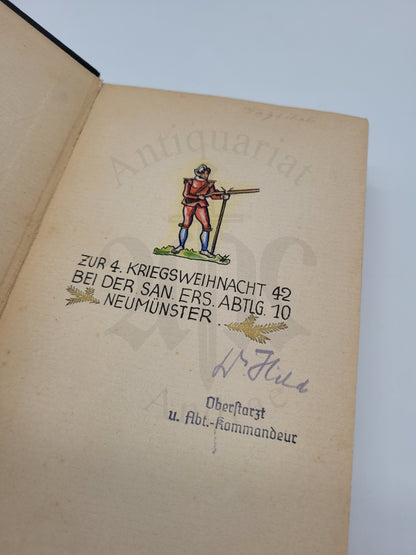 Antiquariat
ZUR 4. KRIEGSWEIHNACHT 42
BEI DER SAN. ERS. ABTLG. 10
NEUMÜNSTER..
Dr. Hild
Oberstarzt
u. Abt.-Kommandeur